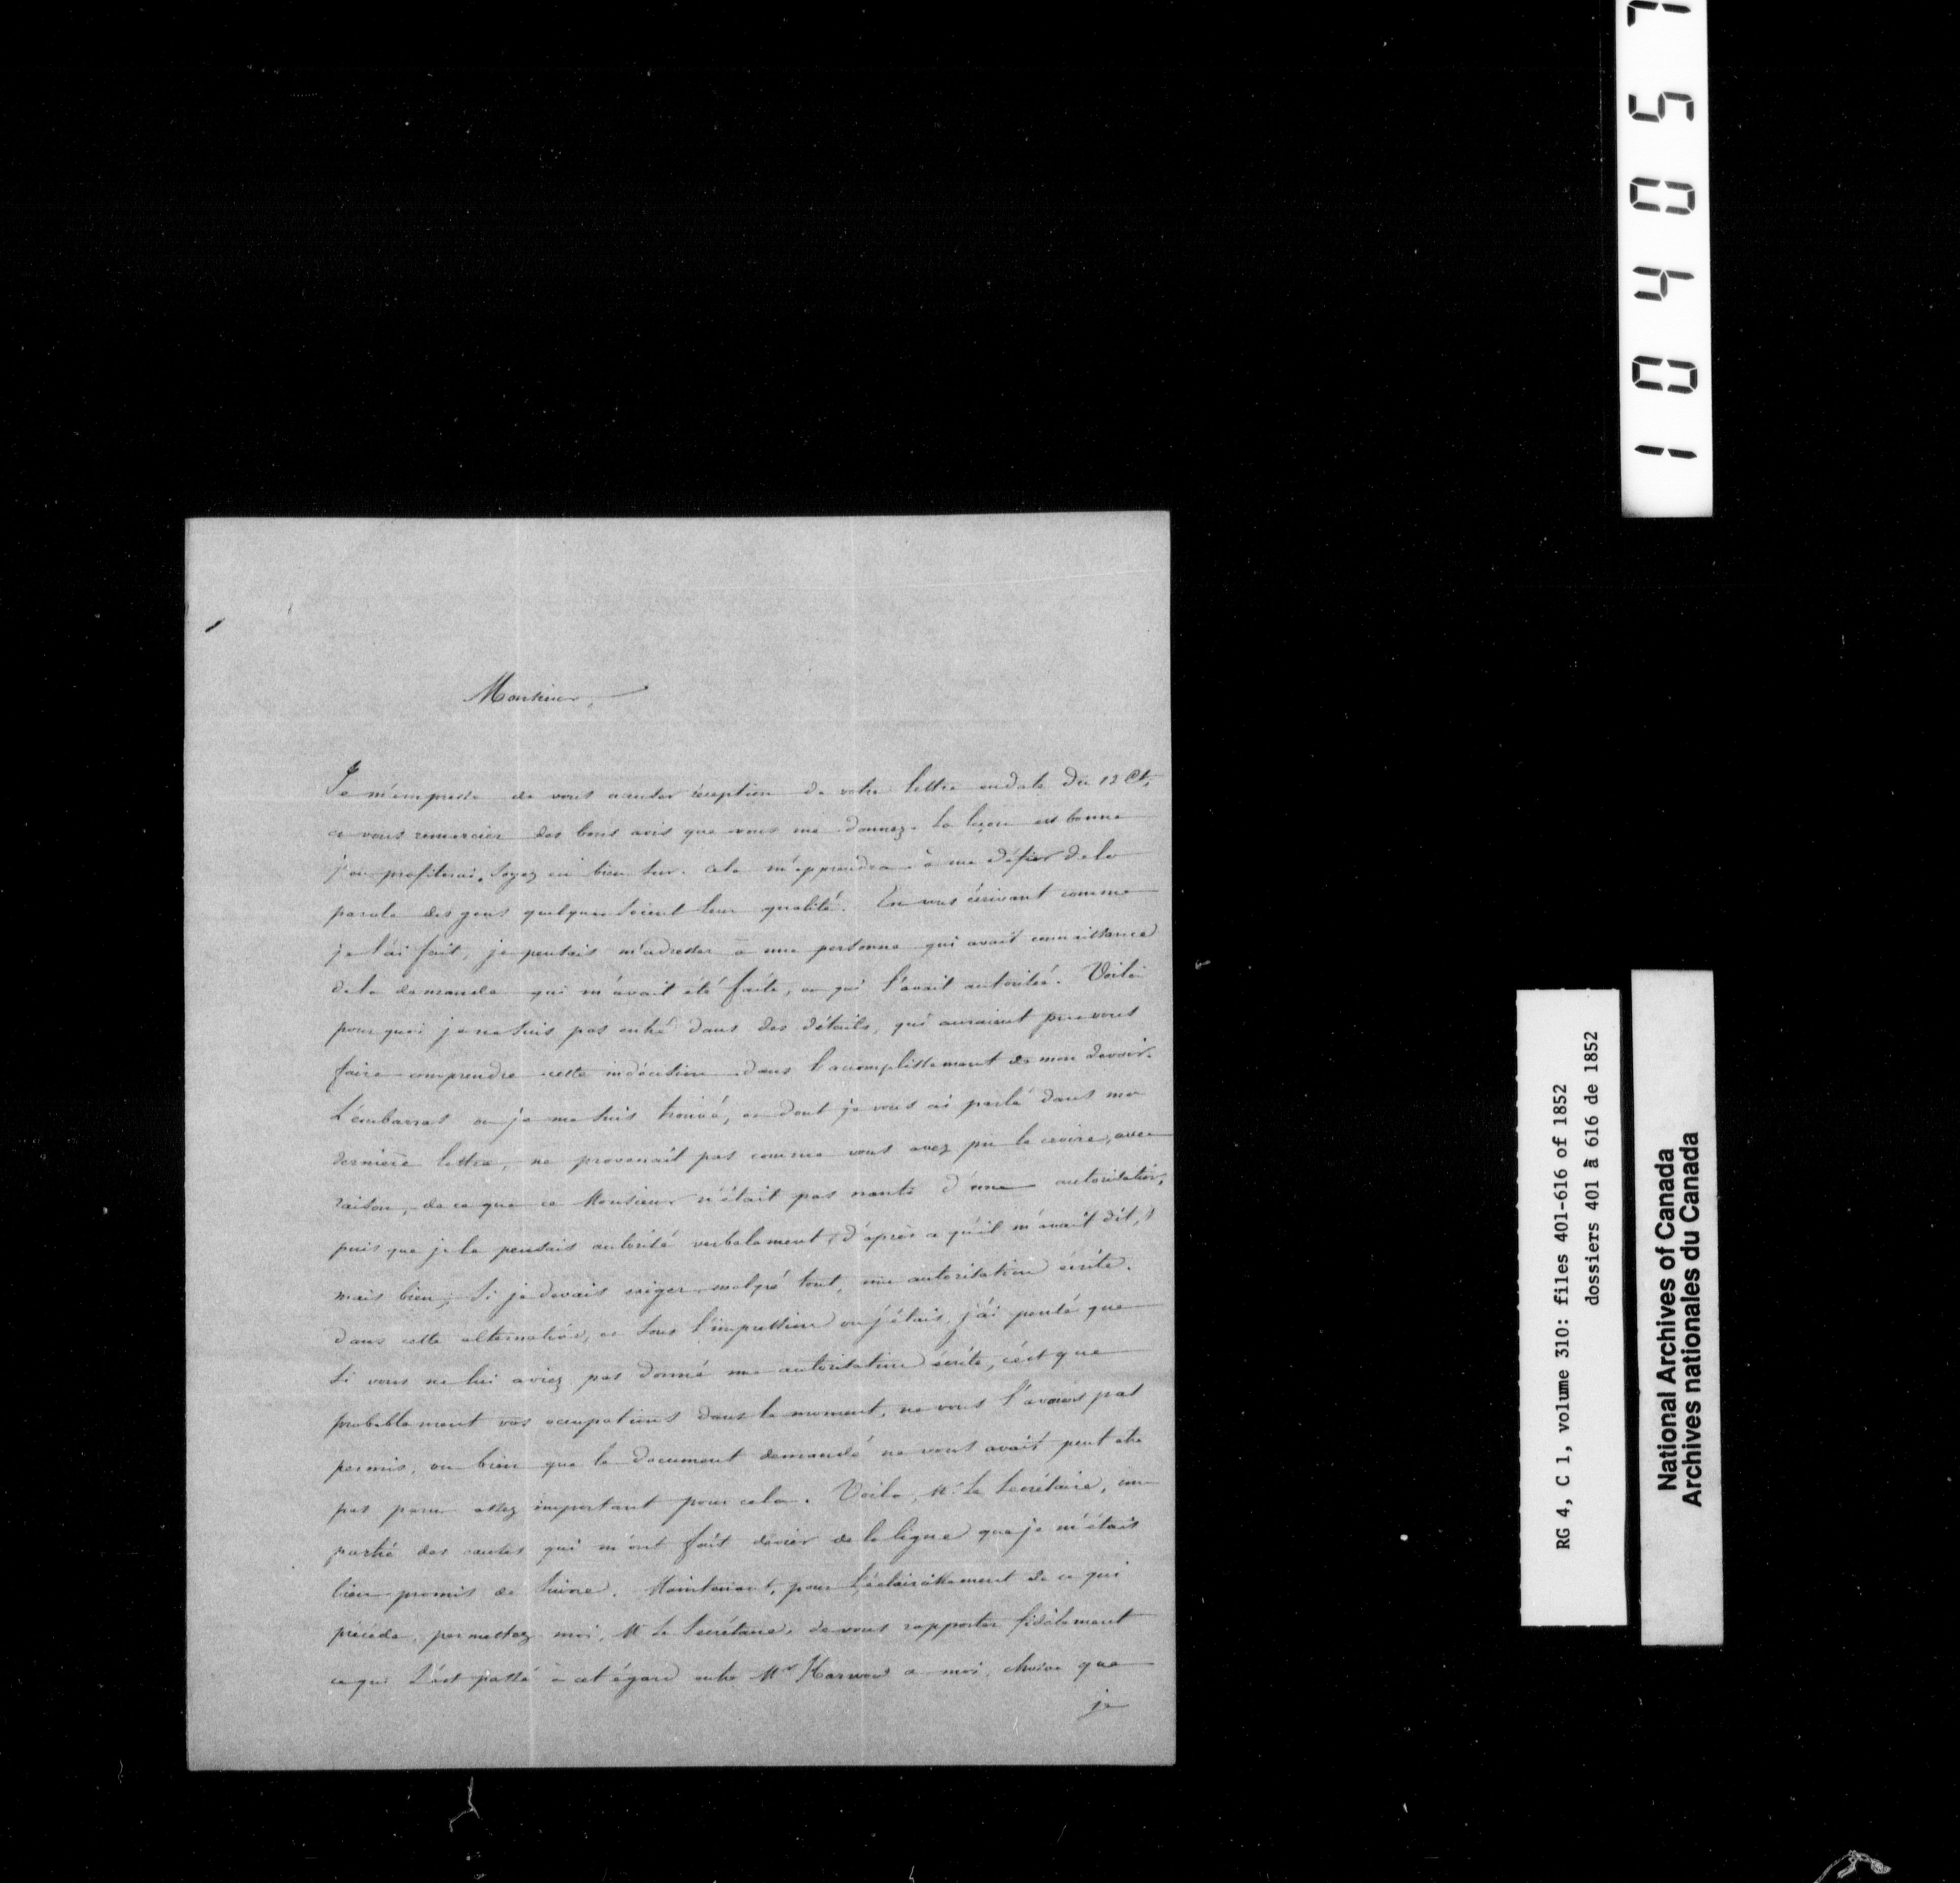 Monsieur,
Je m'empresse de vous accuser réception de votre lettre en date du 12 Ct,
et vous remercier des bons avis que vous me donnez. La leçon est bonne
j'en profiterai, soyez en bien sur. Cela m'apprendra à me défier de la
parole des gens quelques soient leur qualité. En vous écrivant comme
je l'ai fait, je pensais m'adresser à une personne qui avait connaissance
de la demande qui m'avait été faite, et qui l'avait autorisée. Voila
pourquoi je ne suis pas entré dans des détails, qui auraient pu vous
faire comprendre cette indécision dans l'accomplissement de mon devoir.
L'embarras ou je me suis trouvé, et dont je vous ai parlé dans ma
dernière lettre, ne provenait pas comme vous avez pu le croire, avec
raison, de ce que ce Monsieur n'était pas nanti d'une autorisation,
puis que je le pensais autorisé verbalement, d'après ce qu'il m'avait dit,
mais bien, si je devais exiger malgré tout, une autorisation écrite.
dans cette alternative, et sous l'impression ou j'étais, j'ai pensé que
si vous ne lui aviez pas donné une autorisation écrite, c'est que
probablement vos occupations dans le moment, ne vous l'avaient pas
permis, ou bien que le document demandé ne vous avait peut etre
pas paru assez important pour cela. Voila, Mr. le Secrétaire, une
partie des causes qui m'ont fait dévier de la ligne que je m'étais
bien promis de suivre. Maintenant, pour l'éclaircissement de ce qui
précède, permettez moi, Mr le Secrétaire, de vous rapporter fidèlement
ce qui s'est passé à cet égard entre Mr Harwood et moi, chose que
je
1 0 4 0 5 7
RG 4, C 1, volume 310: files 401-616 of 1852
dossiers 401 à 616 de 1852
National Archives of Canada
Archives nationales du Canada